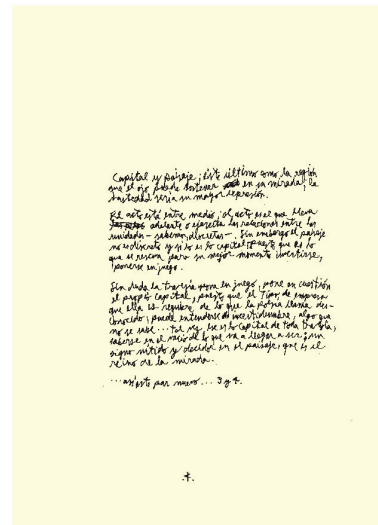 Capital y paisaje; éste último como la región
que el ojo puede sostener en su mirada; la
vastedad sería su mayor expresión.
El acto está entre medio; el acto es el que lleva
adelante o ejercita las relaciones entre las
unidades - sabemos, discretas -. Sin embargo el paisaje
no es discreto y si lo es lo capital puesto que es lo
que se reserva para su mejor momento invertirse,
ponerse en juego.
Sin duda la travesía pone en juego, pone en cuestión
el propio capital, puesto que el tipo, de empresa
que ella es requiere de lo que la poesía llama des-
conocido; puede entenderse incertidumbre, algo que
no se sabe... tal vez ese es lo capital de toda travesía,
saberse en el inicio de lo que va a llegar a ser; un
signo nítido y decidor en el paisaje, que es el
reino de la mirada.
... así este par nuevo... 3 y 4.